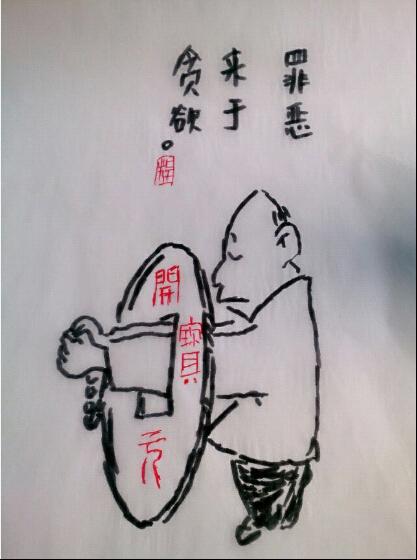 罪恶
来于
贪欲。
開
寳
元